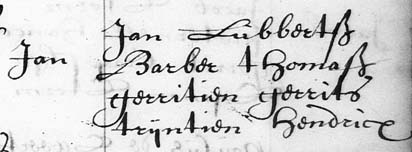 Jan Lubbertß
Jan Barber thomaß
gerritien gerrits
trijntien Hendricx